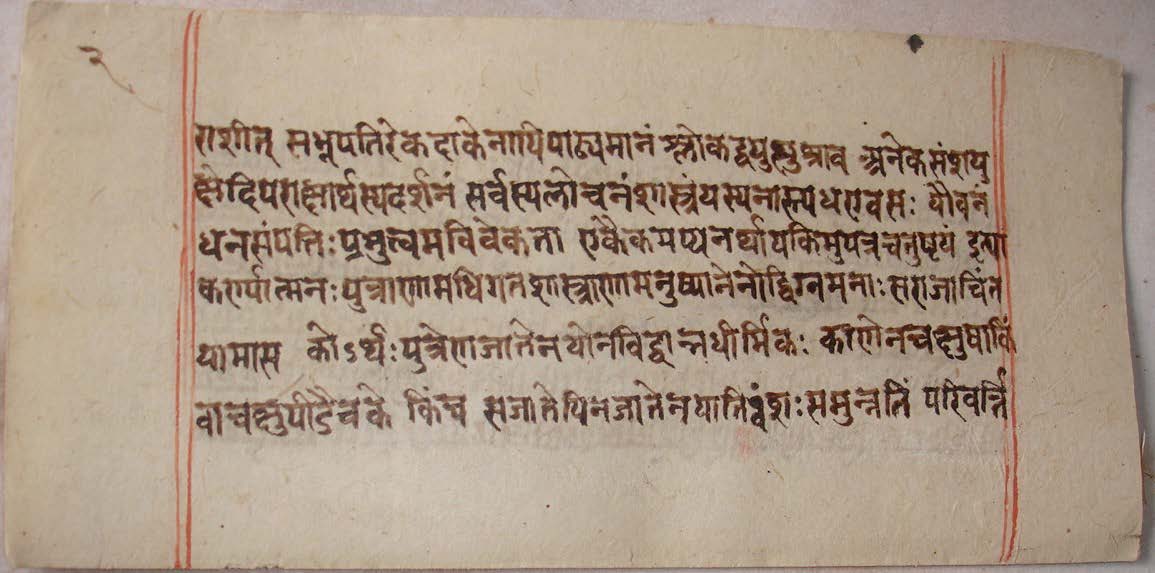 २
राशीत् सभूपतिरेकदाकेनापिपाठ्यमानं श्लोकद्वयुत्सुश्राव अनेकसंशयु
छेदिपरोक्षार्थस्यदर्शनं सर्वस्यलोचनंशास्त्रंयस्यनास्त्यधएवसः यौवनं
धनसंपत्तिः प्रभुत्वमविवेकता एकैकमप्यनर्थायकिमुपत्रचतुष्टयं इत्या
कर्ण्यात्मनः पुत्राणामधिगतशास्त्राणामनुष्ठानेनोद्विग्नमनाः सराजाचिंत
यामास कोऽर्थः पुत्रेणजातेनयोनविद्वान्नधार्मिकः काणेनचक्षुषाकिं
वाचक्षुपीडैवके किंच सजातोयेनजातेनयातिवंशः समुन्नतिं परिवर्त्ति